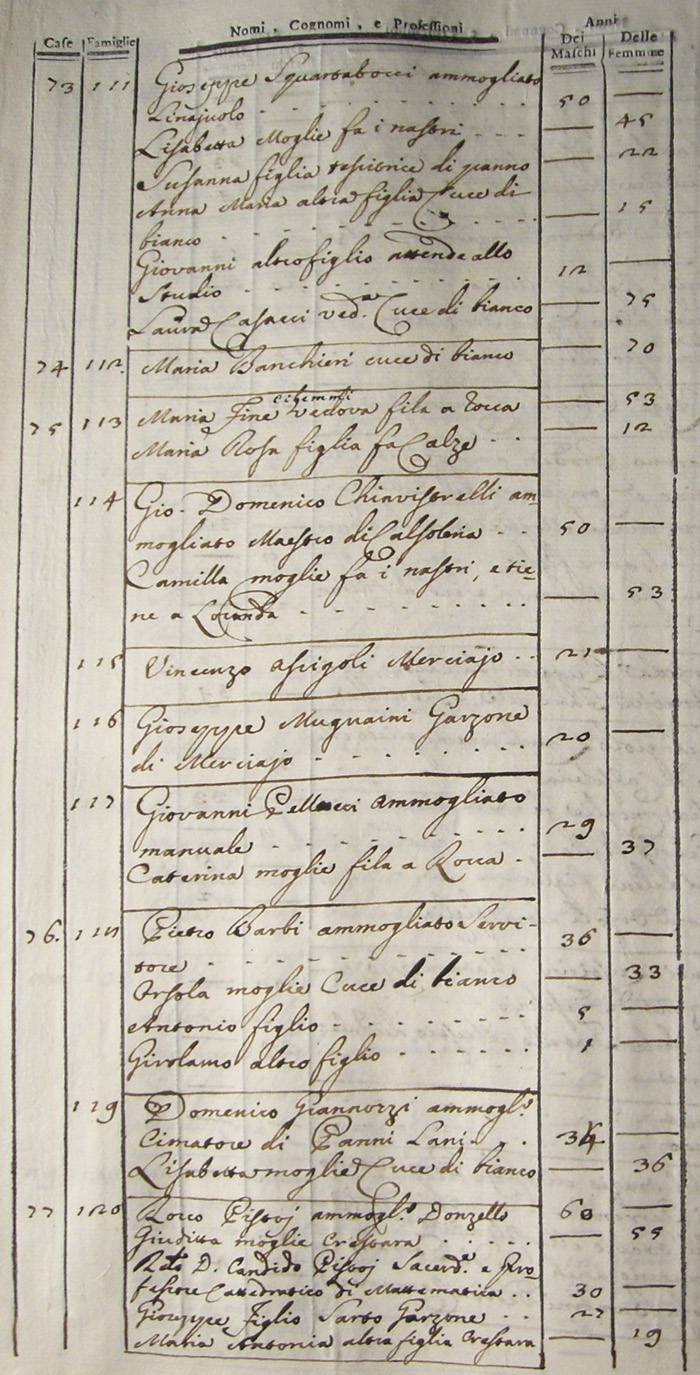 Case Famiglie Nomi, Cognomi, e Professioni Anni
Dei Maschi Delle Femmine
73 111 Gioseppe Squartabocci ammogliato
Linajuolo 50 —
Lisabetta Moglie fa i nastri — 45
Susanna figlia tessitrice di panno — 22
Anna Maria altra figlia Cuce di
bianco — 15
Giovanni altro figlio attende allo
Studio 12 —
Laura Casacci ved.a Cuce di bianco — 75
74 112. Maria Banchieri cuce di bianco — 70
75 113 Maria Fine Vedova fila a Rocca — 53
Maria Rosa figlia fa Calze — 12
114 Gio. Domenico Chiavistrelli am=
mogliato Maestro di Calsoleria 50 —
Camilla moglie fa i nastri, e tie=
ne a Locanda — 53
115 Vincenzo Ascigoli Merciajo 21 —
116 Gioseppe Mugnaini Garzone
di Merciajo 20 —
117 Giovanni Pellucci ammogliato
manuale 29 —
Caterina moglie fila a Rocca — 37
76. 118 Pietro Barbi ammogliato Servi-
tore 36 —
Orsola moglie Cuce di bianco — 33
Antonio figlio 5 —
Girolamo altro figlio 1 —
119 Domenico Giannozzi ammogl.o
Cimatore di Panni Lani 34 —
Lisabetta moglie Cuce di bianco — 36
77 120 Rocco Pistoj ammogl.o Donzello 60 —
Giuditta moglie Crestara — 55
D. Candido Pistoj Sacerd.e e Pro=
fessore Cattedratico di Mattematica 30 —
Gioseppe Figlio Sarto Garzone 27 —
Maria Antonia altra figlia Crestara — 19